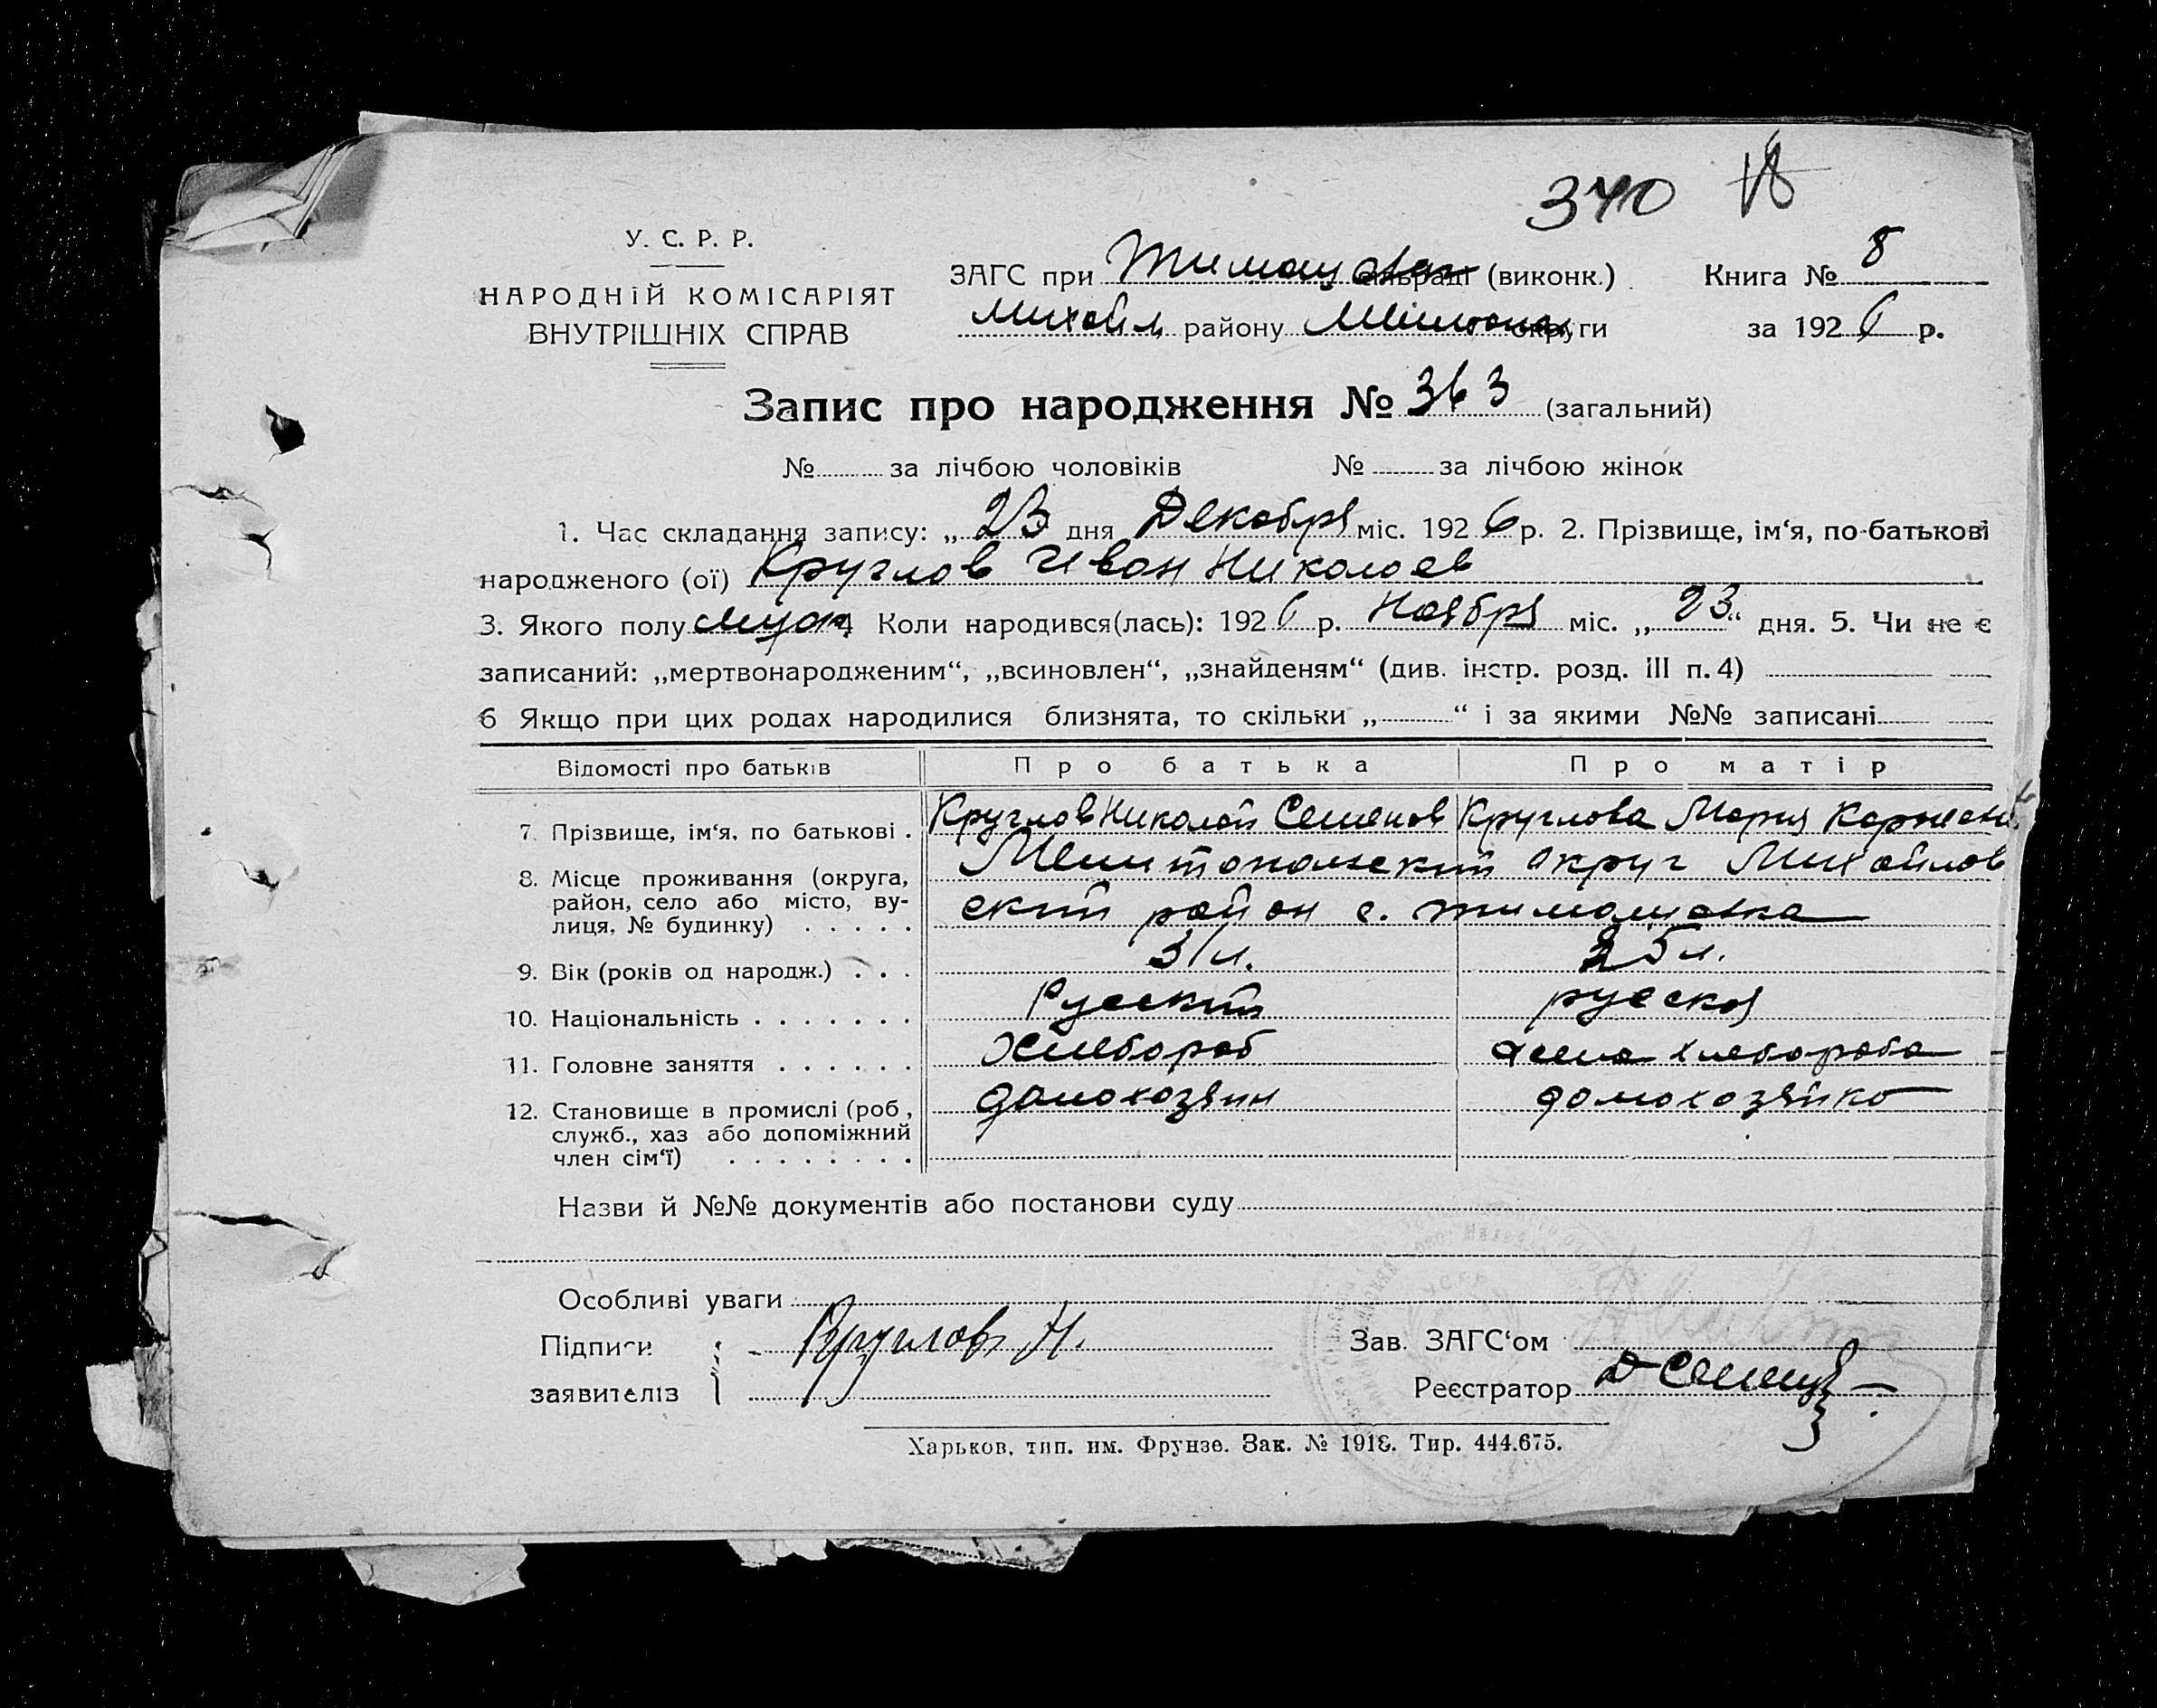 340
У. С. Р. Р.
НАРОДНІЙ КОМІСАРІЯТ
ВНУТРІШНІХ СПРАВ
ЗАГС при Тимошовск сільраді (виконк.) Книга № 8
Михайл району Мелитопол округи за 1926 р.
Запис про народження № 363 (загальний)
№ за лічбою чоловіків № за лічбою жінок
1. Час складання запису: „ 23 дня Декабря міс. 1926 р. 2. Прізвище, ім‘я, по-батькові
народженого (ої) Круглов Иван Николаев
3. Якого полу муж 4 Коли народився(лась): 1926 р. Ноября міс. „ 23 “ дня. 5. Чи не є
записаний: „мертвонародженим“, „всиновлен“, „знайденям“ (див. інстр. розд. III п. 4)
6 Якщо при цих родах народилися близнята, то скільки „ “ і за якими №№ записані
Відомості про батьків Про батька Про матір
7. Прізвище, ім‘я, по батькові . Круглов Николай Семенов Круглова Мария
8. Місце проживання (округа, район, село або місто, вулиця, № будинку) . . . . . Мелитопольский округ Михайлов
ский район с. Тимошовка
9. Вік (років од народж.) . . . 31 л. 25 л.
10. Національність . . . . . . . Русский русская
11. Головне заняття . . . . . . Хлебороб жена хлебороба
12. Становище в промислі (роб., служб., хаз або допоміжний член сім‘ї) . . . . . . . . домохозяин домохозяйка
Назви й №№ документів або постанови суду
Особливі уваги
Підписи заявителів Круглов Н.
Зав. ЗАГС‘ом
Реєстратор
Харьков, тип. им. Фрунзе. Зак. № 1918. Тир. 444.675.